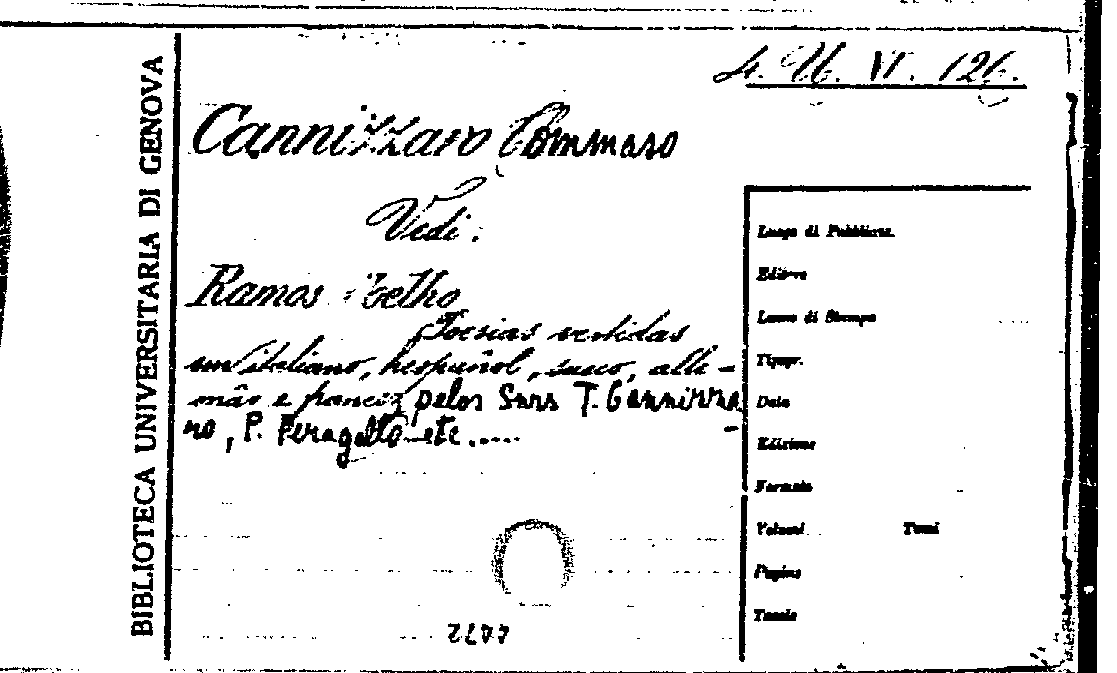 4. U. VI. 126.
BIBLIOTECA UNIVERSITARIA DI GENOVA
Cannizzaro Tommaso
Vedi:
Ramos Coelho
Poesias vertidas
em italiano, hespañol, sueco, alle-
mão e francez pelos Snrs T. Cannizza
ro, P. Peragallo etc.....
Luogo di Pubblicaz.
Editore
Luogo di Stampa
Tipogr.
Data
Edizione
Formato
Volumi Tomi
Pagine
Tavole